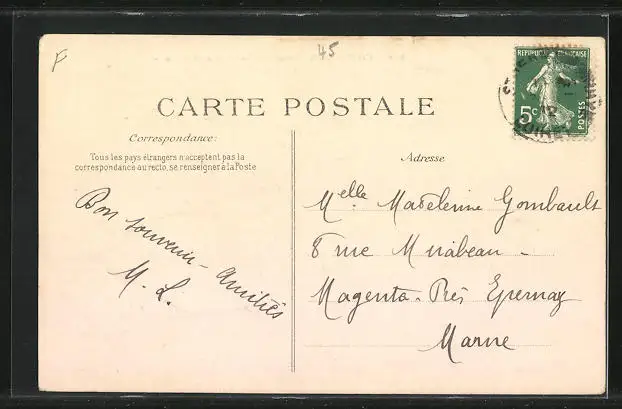 F
45
REPUBLIQUE FRANCAISE
5c
POSTES
12
LOIRET
CARTE POSTALE
Correspondance:
Tous les pays étrangers n'acceptent pas la
correspondance au recto, se renseigner à la Poste
Adresse
Bon souvenir - Amitiés
M. L.
Melle Madeleine Gombault
8 rue Mirabeau -
Magenta. Près Epernay
Marne